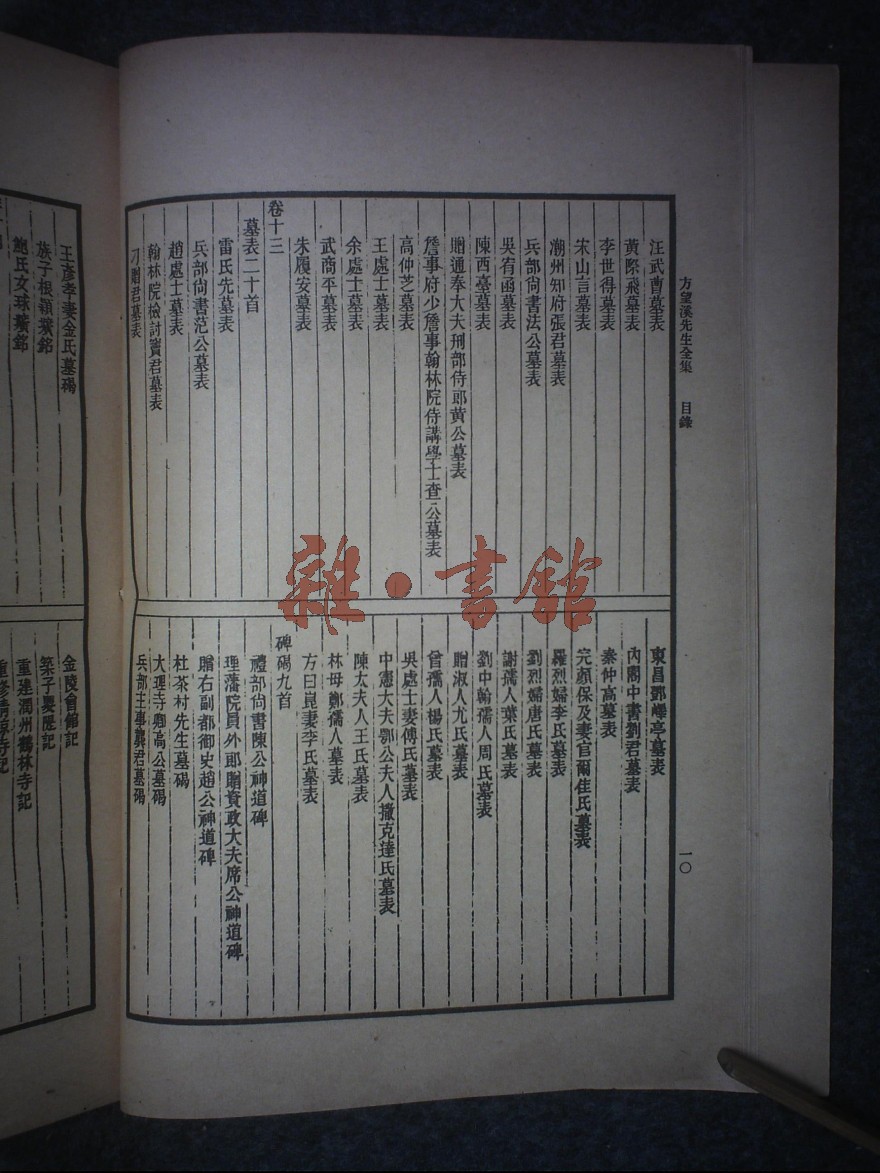 方望溪先生全集 目錄
一〇
汪武曹墓表
黃際飛墓表
李世得墓表
宋山言墓表
潮州知府張君墓表
兵部尙書法公墓表
吳宥函墓表
陳西臺墓表
贈通奉大夫刑部侍郎黃公墓表
詹事府少詹事翰林院侍講學士查公墓表
高仲芝墓表
王處士墓表
余處士墓表
武商平墓表
朱履安墓表
卷十三
墓表二十首
雷氏先墓表
兵部尙書范公墓表
趙處士墓表
翰林院檢討竇君墓表
刁贈君墓表
東昌鄧嶧亭墓表
內閣中書劉君墓表
秦仲高墓表
完顏保及妻官爾佳氏墓表
羅烈婦李氏墓表
劉烈婦唐氏墓表
謝孺人葉氏墓表
劉中翰孺人周氏墓表
贈淑人尤氏墓表
曾孺人楊氏墓表
吳處士妻傅氏墓表
中憲大夫鄂公夫人撒克達氏墓表
陳太夫人王氏墓表
林母鄭孺人墓表
方曰崑妻李氏墓表
碑碣九首
禮部尙書陳公神道碑
理藩院員外郎贈資政大夫席公神道碑
贈右副都御史趙公神道碑
杜茶村先生墓碣
大理寺卿高公墓碣
兵部主事龔君墓碣
王彥孝妻金氏墓碣
族子根穎壙銘
鮑氏女球壙銘
金陵會館記
築子嬰隄記
重建潤州鶴林寺記
重修清涼寺記
雜·書館